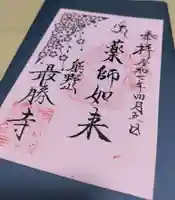 奉拝 令和二年四月五日
薬師如来
熊野山
最勝寺